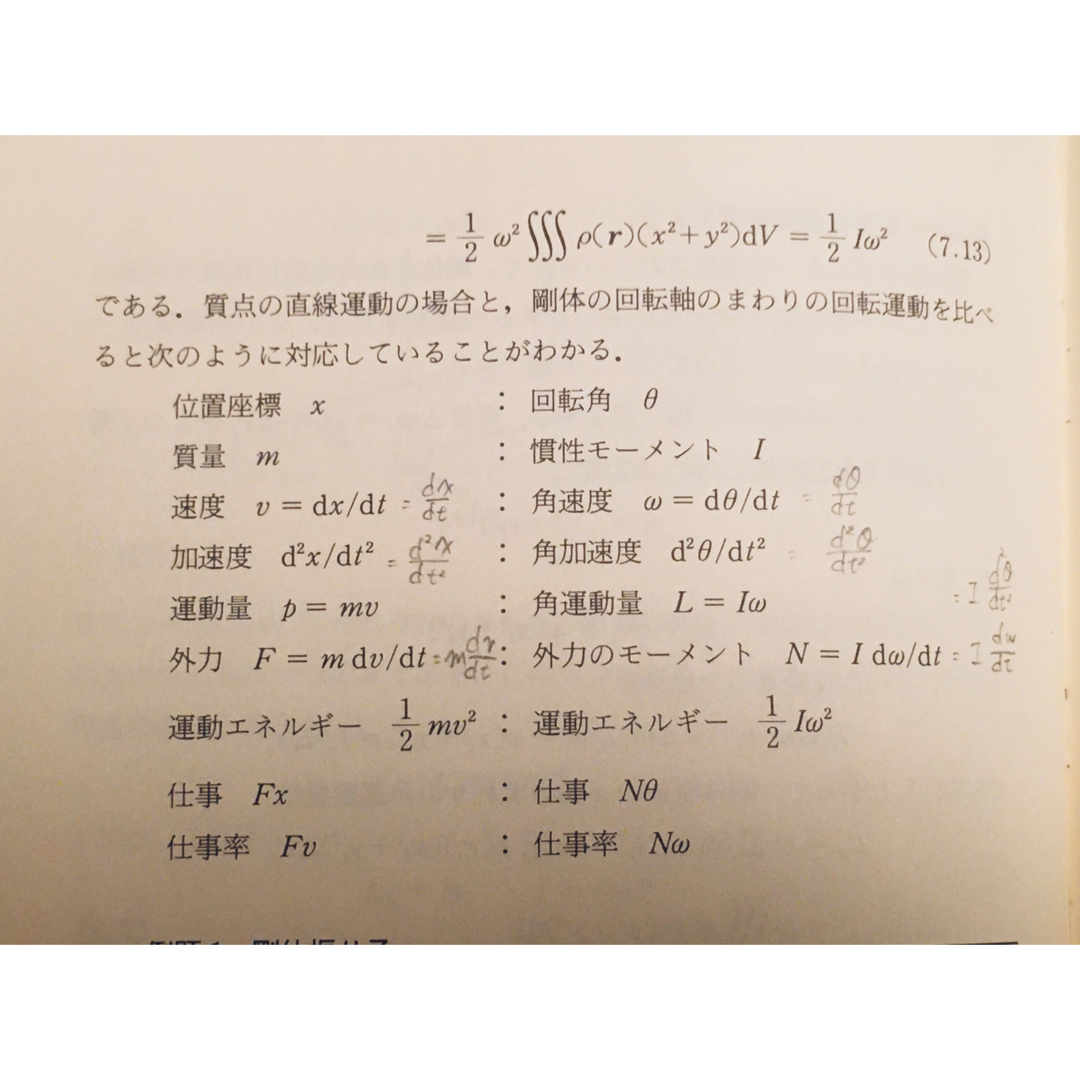 = 1/2 ω² ∭ ρ(r)(x²+y²)dV = 1/2 Iω² (7.13)
である．質点の直線運動の場合と，剛体の回転軸のまわりの回転運動を比べ
ると次のように対応していることがわかる．
位置座標 x : 回転角 θ
質量 m : 慣性モーメント I
速度 v = dx/dt = dx/dt : 角速度 ω = dθ/dt = dθ/dt
加速度 d²x/dt² = d²x/dt² : 角加速度 d²θ/dt² = d²θ/dt²
運動量 p = mv : 角運動量 L = Iω
= I d²θ/dt²
外力 F = m dv/dt = m dv/dt : 外力のモーメント N = I dω/dt = I dω/dt
運動エネルギー 1/2 mv² : 運動エネルギー 1/2 Iω²
仕事 Fx : 仕事 Nθ
仕事率 Fv : 仕事率 Nω